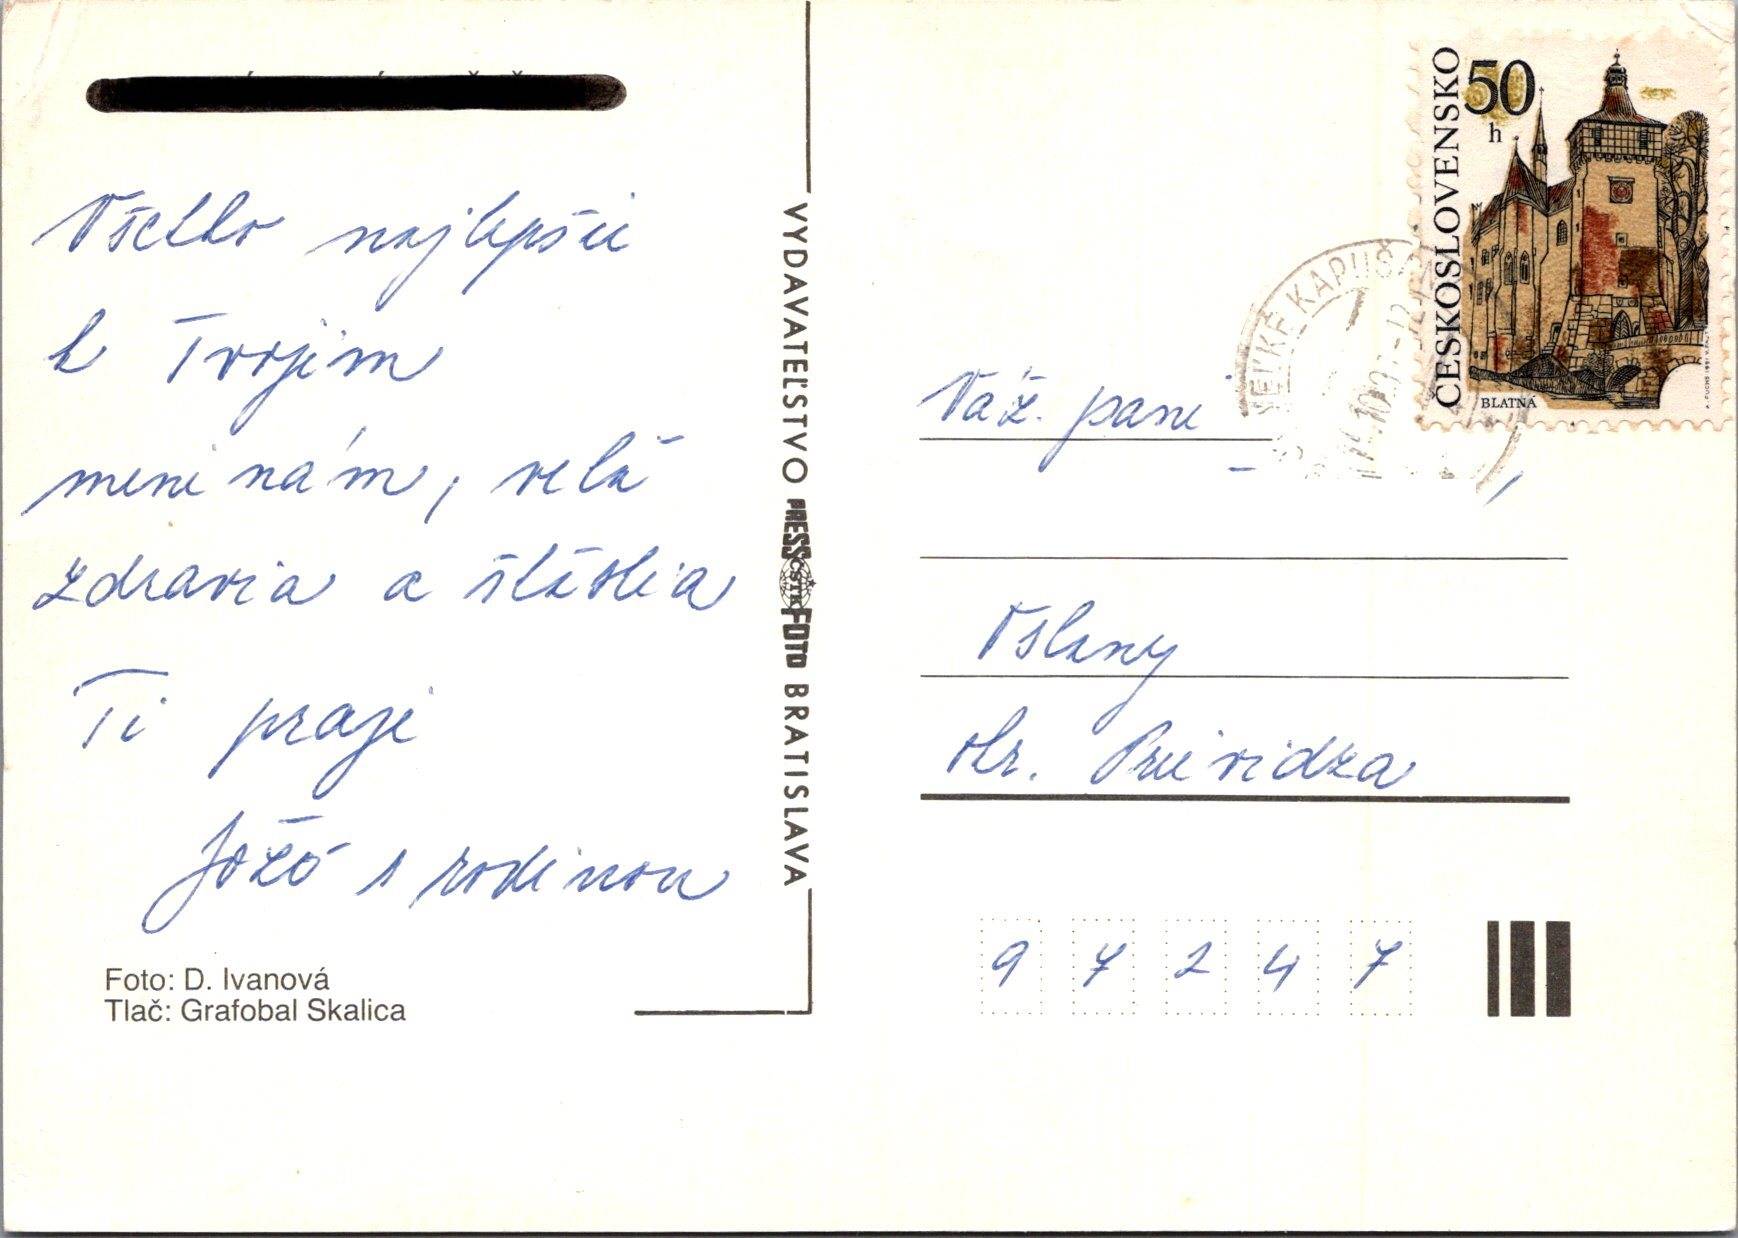 Všetko najlepšie
k Tvojim
meninám, veľa
zdravia a šťastia
Ti praje
Jožo s rodinou
Foto: D. Ivanová
Tlač: Grafobal Skalica
VYDAVATEĽSTVO PRESSFOTO BRATISLAVA
ČSTK
ČESKOSLOVENSKO
50
h
BLATNÁ
VEĽKÉ KAPUŠANY
Váž. pani
Oslany
okr. Prievidza
97247